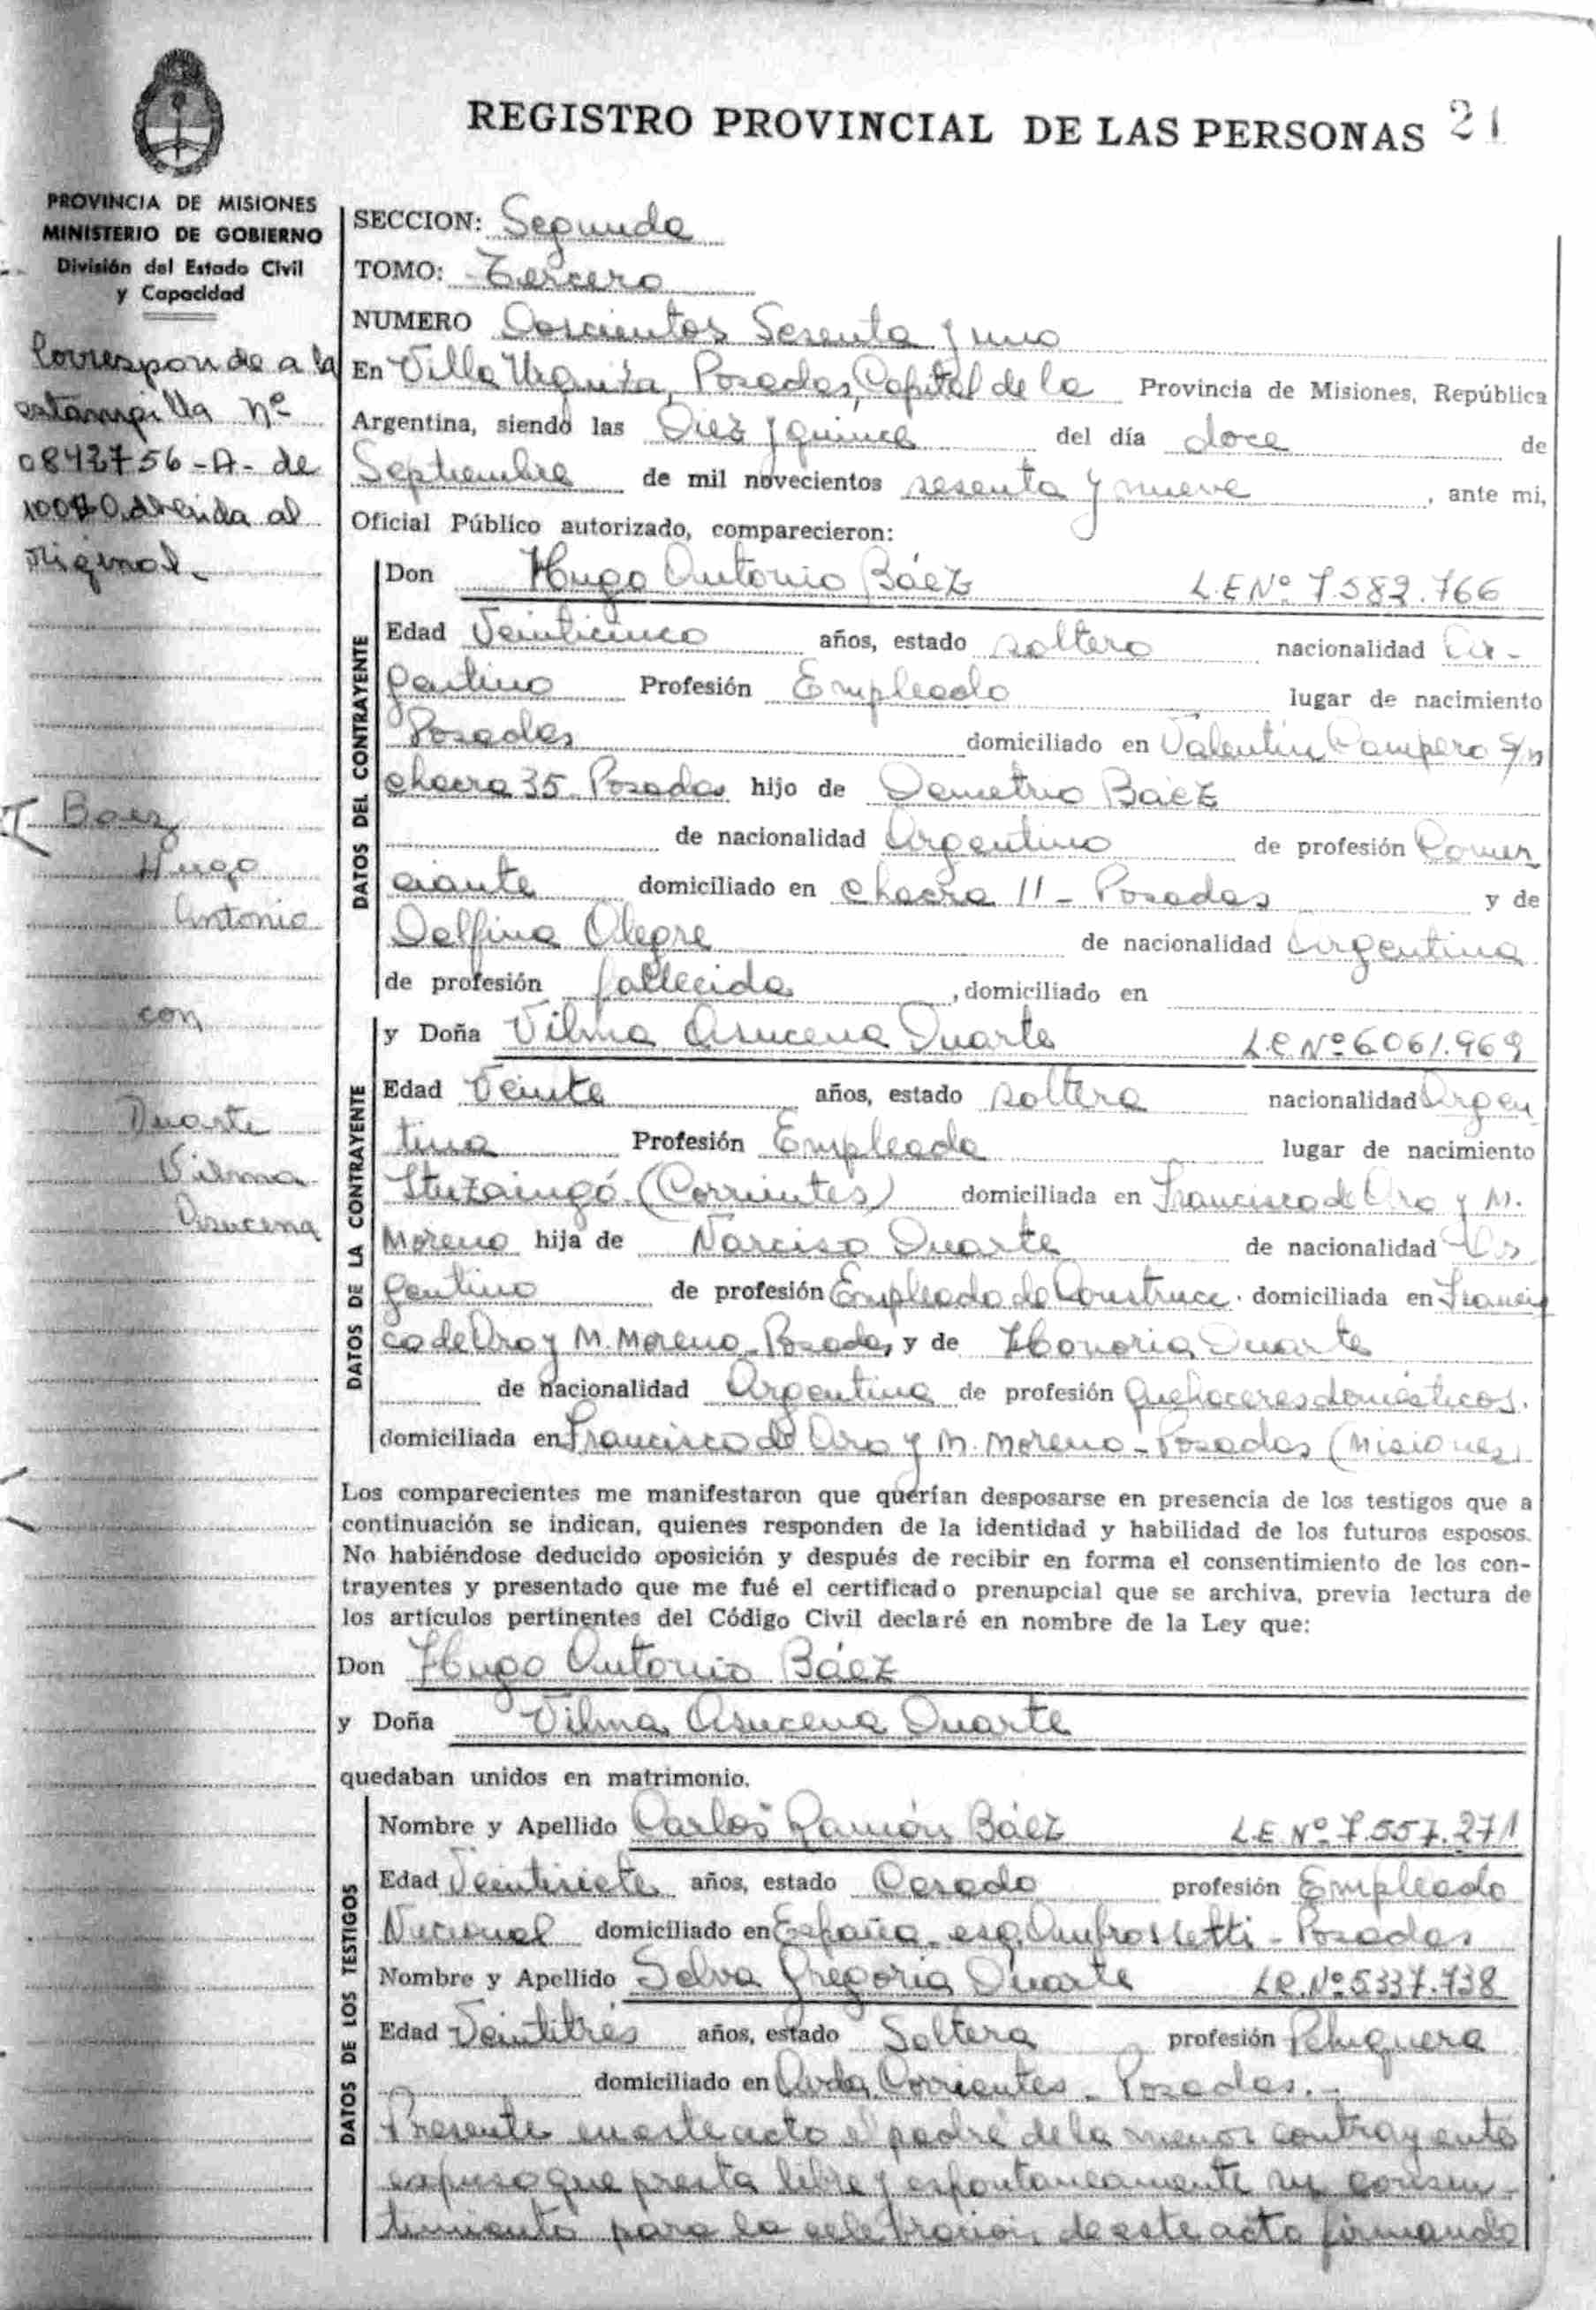 REGISTRO PROVINCIAL DE LAS PERSONAS 21
PROVINCIA DE MISIONES
MINISTERIO DE GOBIERNO
División del Estado Civil
y Capacidad
Corresponde a la
estampilla nº
0842756-A- de
adherida al
original.
Baez
Hugo
Antonio
con
Duarte
Vilma
Asucena
SECCION: Segunda
TOMO: Tercero
NUMERO Doscientos Sesenta y uno
En Villa Urquiza, Posadas, Capital de la Provincia de Misiones, República
Argentina, siendo las Diez y quince del día doce de
Septiembre de mil novecientos sesenta y nueve, ante mi,
Oficial Público autorizado, comparecieron:
DATOS DEL CONTRAYENTE
Don Hugo Antonio Báez L.E Nº 7.582.766
Edad Veinticinco años, estado soltero nacionalidad Ar-
gentino Profesión Empleado lugar de nacimiento
Posadas domiciliado en Valentin Pampero S/n
chacra 35 Posadas hijo de Demetrio Báez
de nacionalidad Argentino de profesión Comer
ciante domiciliado en chacra 11 - Posadas y de
Delfina Alegre de nacionalidad Argentina
de profesión fallecida, domiciliado en
DATOS DE LA CONTRAYENTE
y Doña Vilma Asucena Duarte L.C Nº 6.061.969
Edad Veinte años, estado soltera nacionalidad Argen
tina Profesión Empleada lugar de nacimiento
Ituzaingó (Corrientes) domiciliada en Francisco de Aro y M.
Moreno hija de Narciso Duarte de nacionalidad Ar
gentino de profesión Empleado de Construcc. domiciliada en Francis
co de Aro y M. Moreno - Posadas y de Honoria Duarte
de nacionalidad Argentina de profesión Quehaceres domésticos.
domiciliada en Francisco de Aro y M. Moreno - Posadas (Misiones)
Los comparecientes me manifestaron que querían desposarse en presencia de los testigos que a
continuación se indican, quienes responden de la identidad y habilidad de los futuros esposos.
No habiéndose deducido oposición y después de recibir en forma el consentimiento de los con-
trayentes y presentado que me fué el certificado prenupcial que se archiva, previa lectura de
los artículos pertinentes del Código Civil declaré en nombre de la Ley que:
Don Hugo Antonio Báez
y Doña Vilma Asucena Duarte
quedaban unidos en matrimonio.
DATOS DE LOS TESTIGOS
Nombre y Apellido Carlos Ramón Báez L.E Nº 7.557.271
Edad Veintisiete años, estado Casado profesión Empleado
Nacional domiciliado en España esq. Ambrossetti - Posadas
Nombre y Apellido Selva Gregoria Duarte L.C. Nº 5.337.738
Edad Veintitrés años, estado Soltera profesión Peluquera
domiciliado en Avda, Corrientes - Posadas.-
Presente en este acto el padre de la menor contrayente
expuso que presta libre y espontaneamente su consen-
timiento para la celebración de este acto firmando